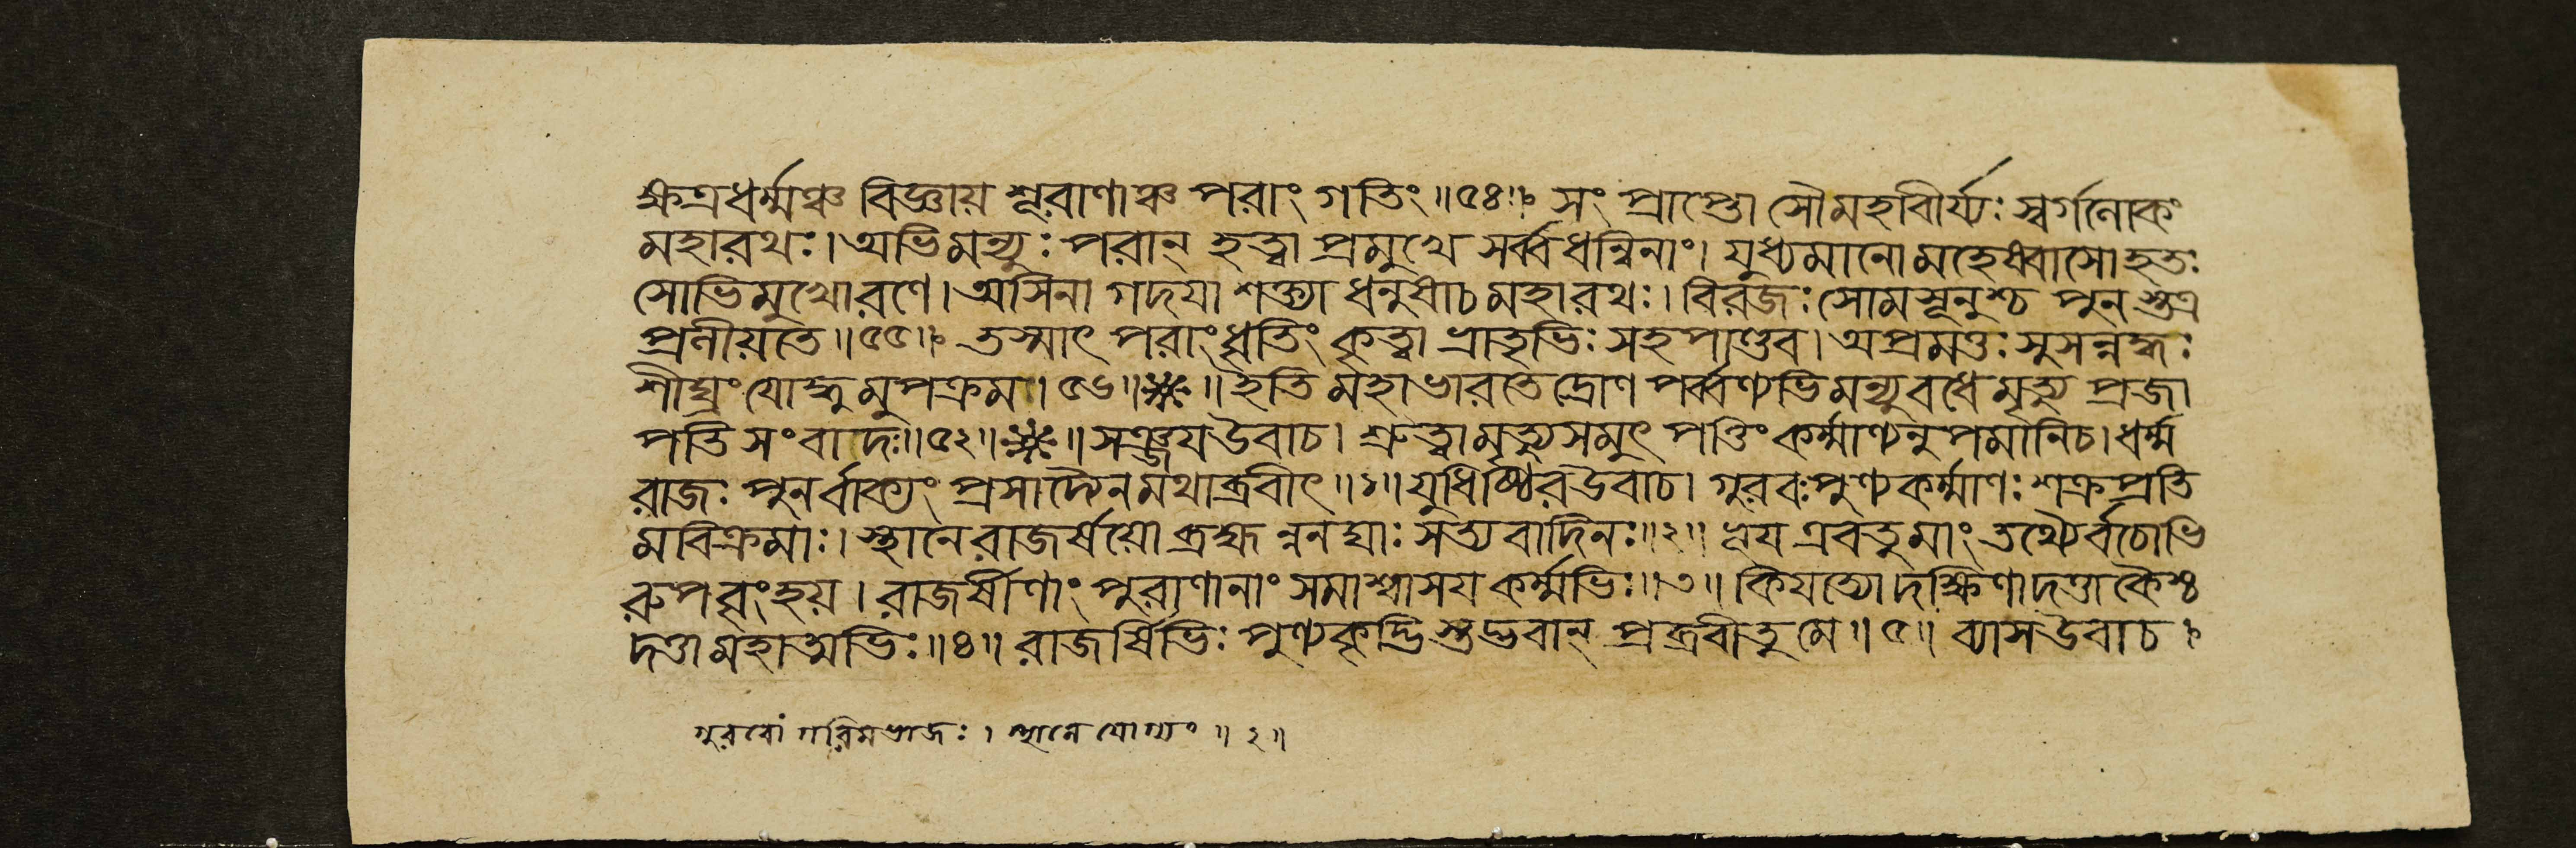 ক্ষত্রধর্ম্মঞ্চ বিজ্ঞায় শূরাণাঞ্চ পরাং গতিং॥৫৪॥ সংপ্রাপ্তো সৌমহাবীর্য্যঃ স্বর্গলোকং
মহারথঃ। অভিমন্যুঃ পরান্ হত্বা প্রমুখে সর্ব্বধন্বিনাং। যুধ্যমানো মহেষ্বাসো হতঃ
সোভিমুখোরণে। অসিনা গদয়া শক্ত্যা ধনুষাচ মহারথঃ। বিরজঃ সোমসূনুশ্চ পুনস্তত্র
প্রলীয়তে॥৫৫॥ তস্মাৎ পরাং ধৃতিং কৃত্বা ভ্রাতৃভিঃ সহ পাণ্ডব। অপ্রমত্তঃ সুসন্নদ্ধঃ
শীঘ্রং যোদ্ধুমুপক্রম॥৫৬॥ ॥ ইতি মহাভারতে দ্রোণপর্ব্বণ্যভিমন্যুবধে মৃত্যু প্রজা
পতি সংবাদঃ॥৫২॥ ॥ সঞ্জয় উবাচ। শ্রুত্বা মৃত্যুসমুৎপত্তিং কর্ম্মাণ্যনুপমানিচ। ধর্ম্ম
রাজঃ পুনর্বাক্যং প্রসাদ্যৈনমথাব্রবীৎ॥১॥ যুধিষ্ঠির উবাচ। গুরবঃ পুণ্যকর্ম্মাণঃ শক্রপ্রতি
মবিক্রমাঃ। স্থানে রাজর্ষয়ো ব্রহ্মন্ননঘাঃ সত্যবাদিনঃ॥২॥ ভূয় এবতু মাং তথ্যৈর্বচোভি
রুপবৃংহয়। রাজর্ষীণাং পুরাণানাং সমাশ্বাসয় কর্ম্মভিঃ॥৩॥ কিয়ত্যো দক্ষিণা দত্তা কৈশ্চ
দত্তা মহাত্মভিঃ॥৪॥ রাজর্ষিভিঃ পুণ্যকৃদ্ভিস্তদ্ভবান্ প্রব্রবীতু মে॥৫॥ ব্যাস উবাচ।
গুরবো গরিমভাজঃ। স্থানে যোগ্যং॥২॥